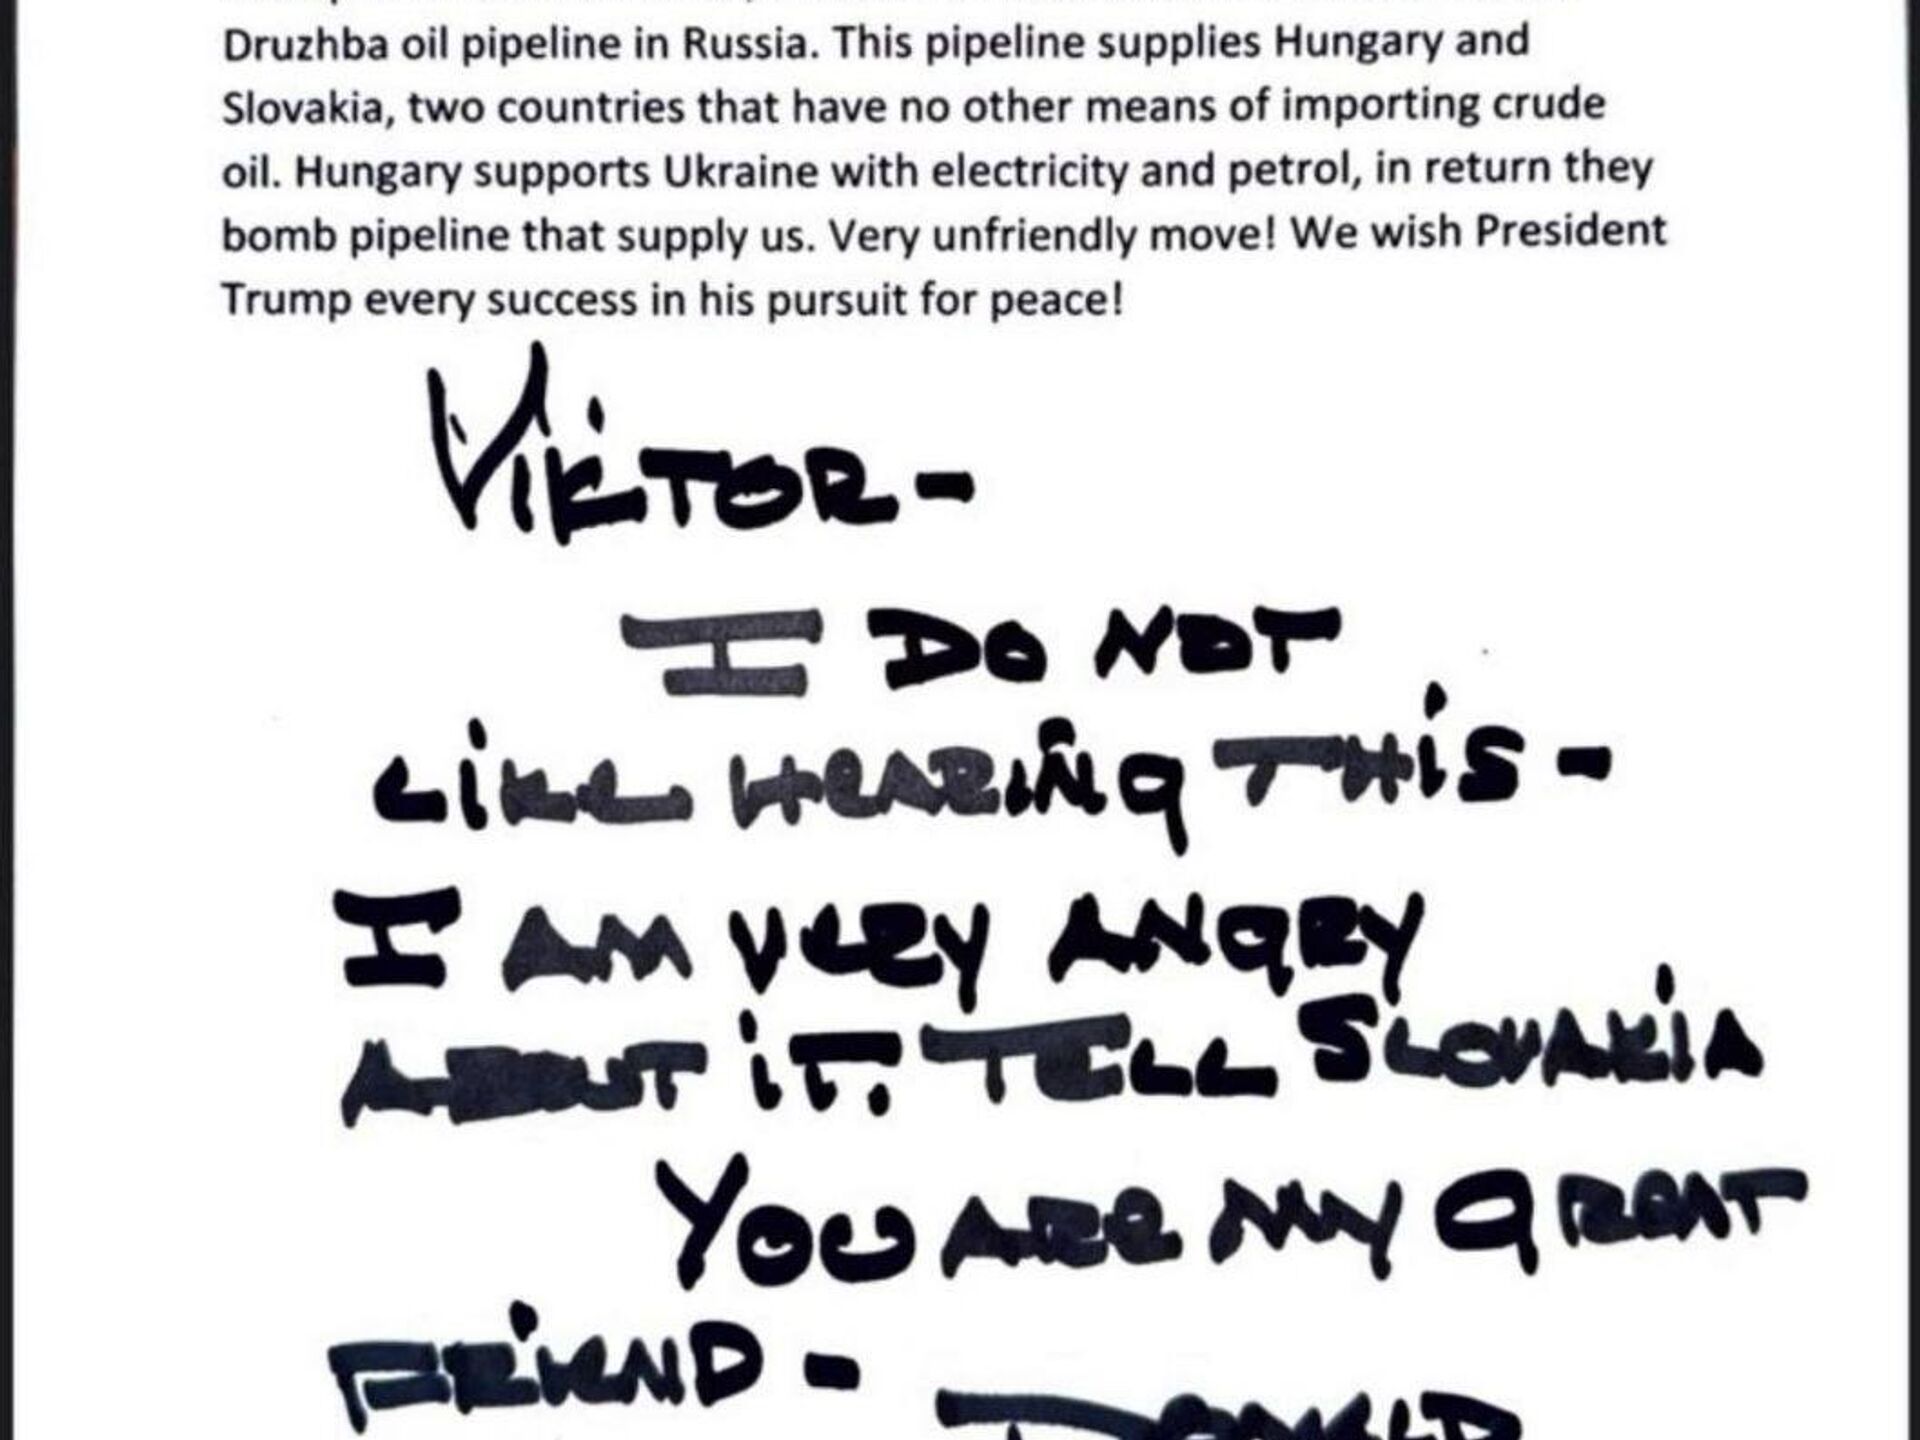 Druzhba oil pipeline in Russia. This pipeline supplies Hungary and
Slovakia, two countries that have no other means of importing crude
oil. Hungary supports Ukraine with electricity and petrol, in return they
bomb pipeline that supply us. Very unfriendly move! We wish President
Trump every success in his pursuit for peace!
VIKTOR-
I DO NOT
LIKE HEARING THIS -
I AM VERY ANGRY
ABOUT IT. TELL SLOVAKIA
YOU ARE MY GREAT
FRIEND -
DONALD